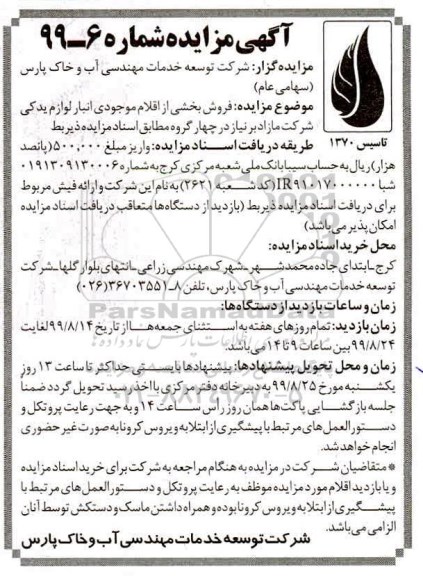 آگهی مزایده شماره ۶-۹۹
تاسیس ۱۳۷۰
مزایده‌گزار: شرکت توسعه خدمات مهندسی آب و خاک پارس
(سهامی عام)
موضوع مزایده: فروش بخشی از اقلام موجودی انبار لوازم یدکی
شرکت مازاد بر نیاز در چهار گروه مطابق اسناد مزایده ذیربط
طریقه دریافت اسناد مزایده: واریز مبلغ ۵۰۰,۰۰۰ (پانصد
هزار) ریال به حساب سیبا بانک ملی شعبه مرکزی کرج به شماره ۰۱۹۱۳۰۹۱۳۰۰۰۶
شبا IR۹۱۰۱۷۰۰۰۰۰۰۰ (کد شعبه ۲۶۲۱) به نام این شرکت و ارائه فیش مربوط
برای دریافت اسناد مزایده ذیربط (بازدید از دستگاه‌ها متعاقب دریافت اسناد مزایده
امکان پذیر می‌باشد)
محل خرید اسناد مزایده:
کرج-ابتدای جاده محمدشهر-شهرک مهندسی زراعی-انتهای بلوار گلها-شرکت
توسعه خدمات مهندسی آب و خاک پارس، تلفن ۸-۳۶۷۰۳۵۵۱ (۰۲۶)
زمان و ساعات بازدید از دستگاه‌ها:
زمان بازدید: تمام روزهای هفته به استثنای جمعه‌ها از تاریخ ۹۹/۸/۱۴ لغایت
۹۹/۸/۲۴ بین ساعات ۹ تا ۱۴ می‌باشد.
زمان و محل تحویل پیشنهادها: پیشنهادها بایستی حداکثر تا ساعت ۱۳ روز
یکشنبه مورخ ۹۹/۸/۲۵ به دبیرخانه دفتر مرکزی با اخذ رسید تحویل گردد ضمنا
جلسه بازگشایی پاکت‌ها همان روز راس ساعت ۱۴ و به جهت رعایت پروتکل و
دستورالعمل‌های مرتبط با پیشگیری از ابتلا به ویروس کرونا به صورت غیر حضوری
انجام خواهد شد.
* متقاضیان شرکت در مزایده به هنگام مراجعه به شرکت برای خرید اسناد مزایده
و یا بازدید اقلام مورد مزایده موظف به رعایت پروتکل و دستورالعمل‌های مرتبط با
پیشگیری از ابتلا به ویروس کرونا بوده و همراه داشتن ماسک و دستکش توسط آنان
الزامی می‌باشد.
شرکت توسعه خدمات مهندسی آب و خاک پارس